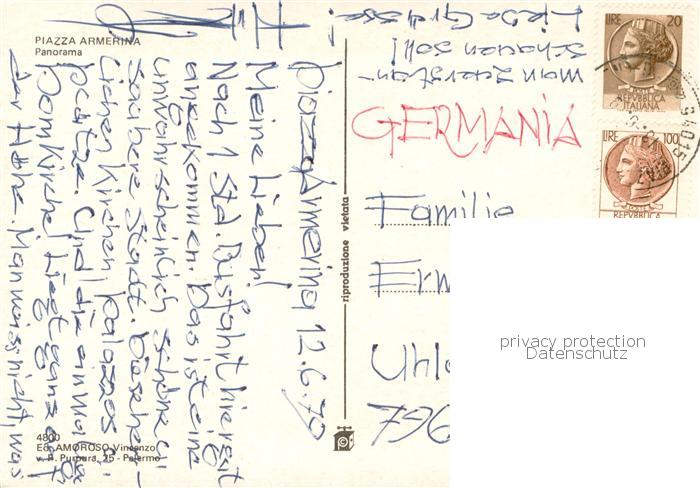 PIAZZA ARMERINA
Panorama
Piazza Armerina 12.6.79
Meine Lieben!
Nach 1 Std Busfahrt hierseit
angekommen. Das ist eine
unwahrscheinlich schöne u.
saubere Stadt. Die herr-
lichen Kirchen, Palazzos u.
plätze. Und die einmalige
Domkirche! Liegt ganz auf
der Höhe. Man weiss nicht, was
man zuerst an-
schauen soll!
Liebe Grüsse!
GERMANIA
Familie
Erm
Uhl
967
LIRE 20
REPVBBLICA
ITALIANA
LIRE 100
REPVBBLICA
94015
riproduzione vietata
privacy protection
Datenschutz
4800
Ed. AMOROSO Vincenzo
v. R. Purpura, 25 - Palermo